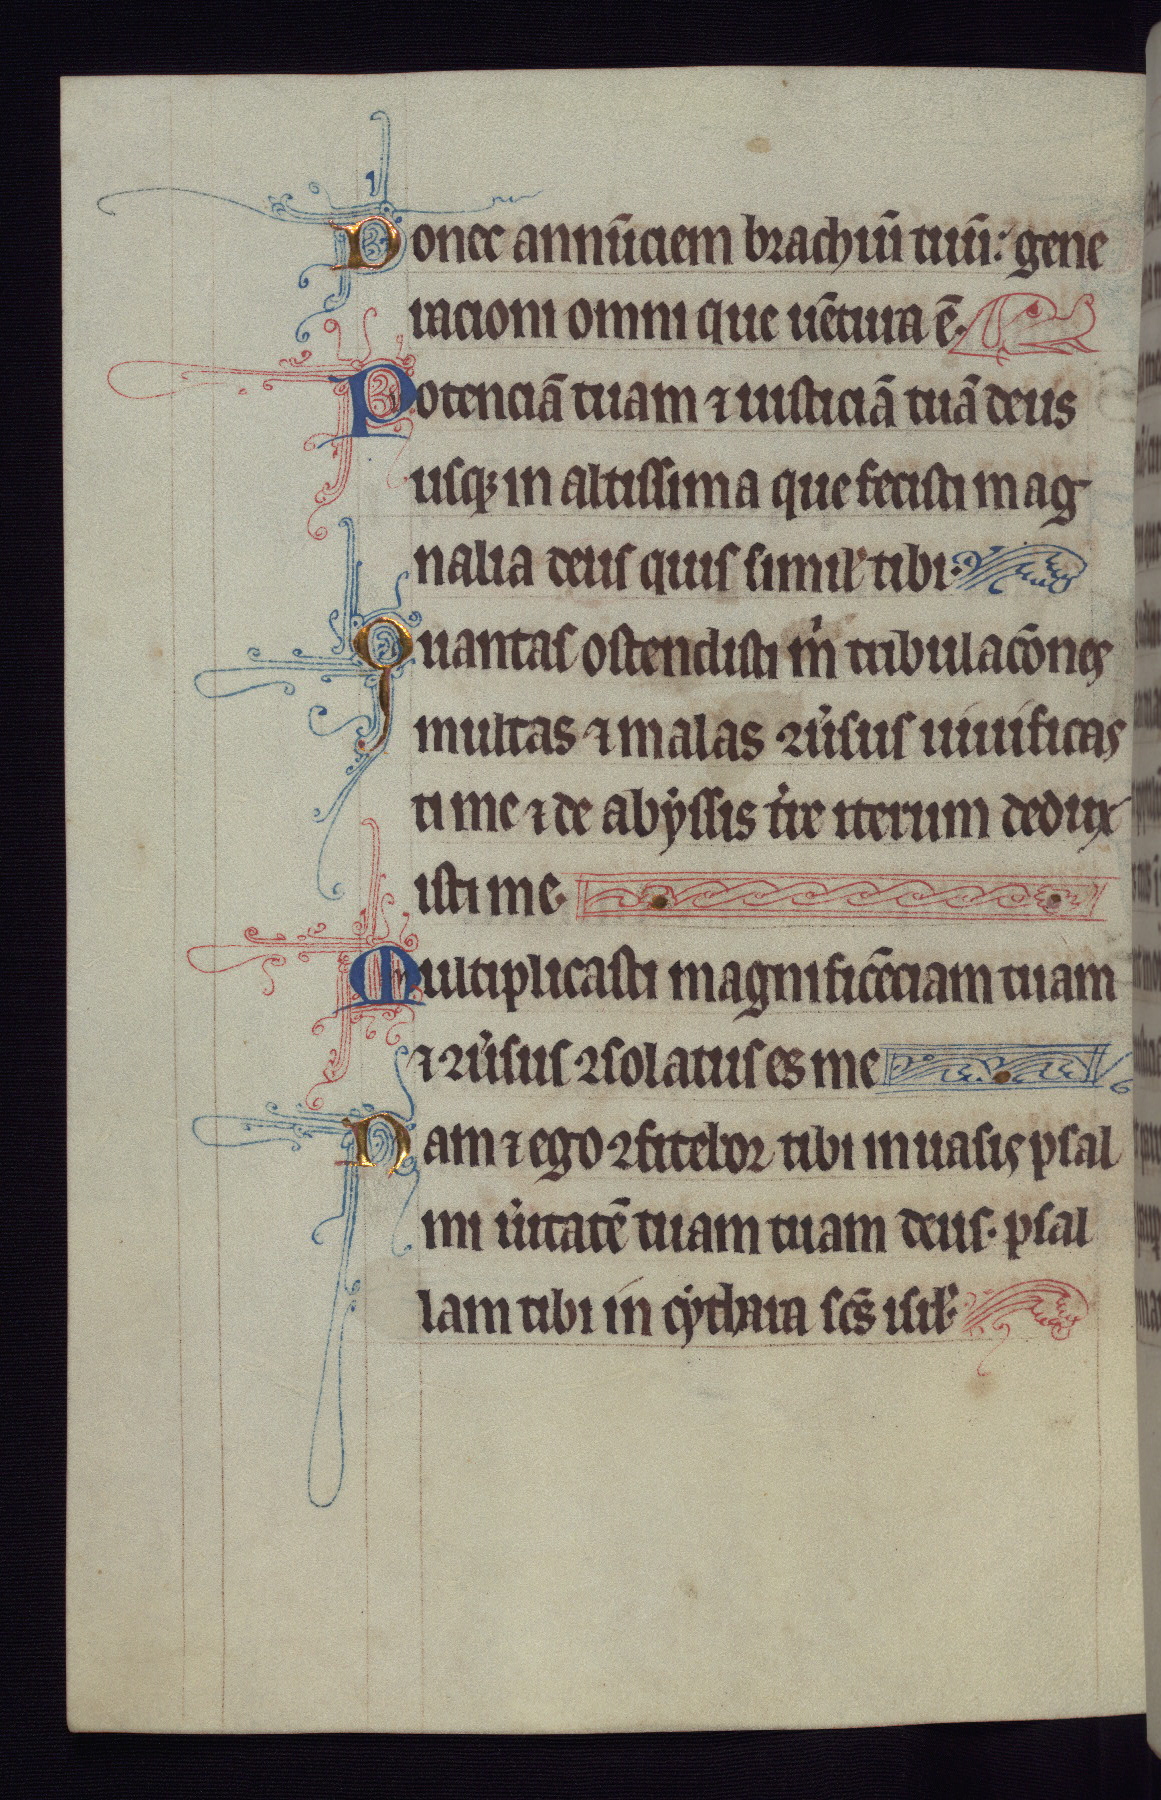 Donec annūciem brachiū tuū: gene
racioni omni que uētura ē.
Potenciā tuam ⁊ iusticiā tuā deus
usqꝫ in altissima que fecisti mag
nalia deus quis simil' tibi.
Quantas ostendisti m̍ tribulacōnes
multas ⁊ malas ꝯu̍sus uiuificas
ti me ⁊ de abyssis t̍re iterum dedux
isti me.
Multiplicasti magnificēciam tuam
⁊ ꝯu̍sus ꝯsolatus es me
Nam ⁊ ego ꝯfitebor tibi in uasis psal
mi u̍itatē tuam tuam deus. psal
lam tibi in cythara scs̄ isrl'.